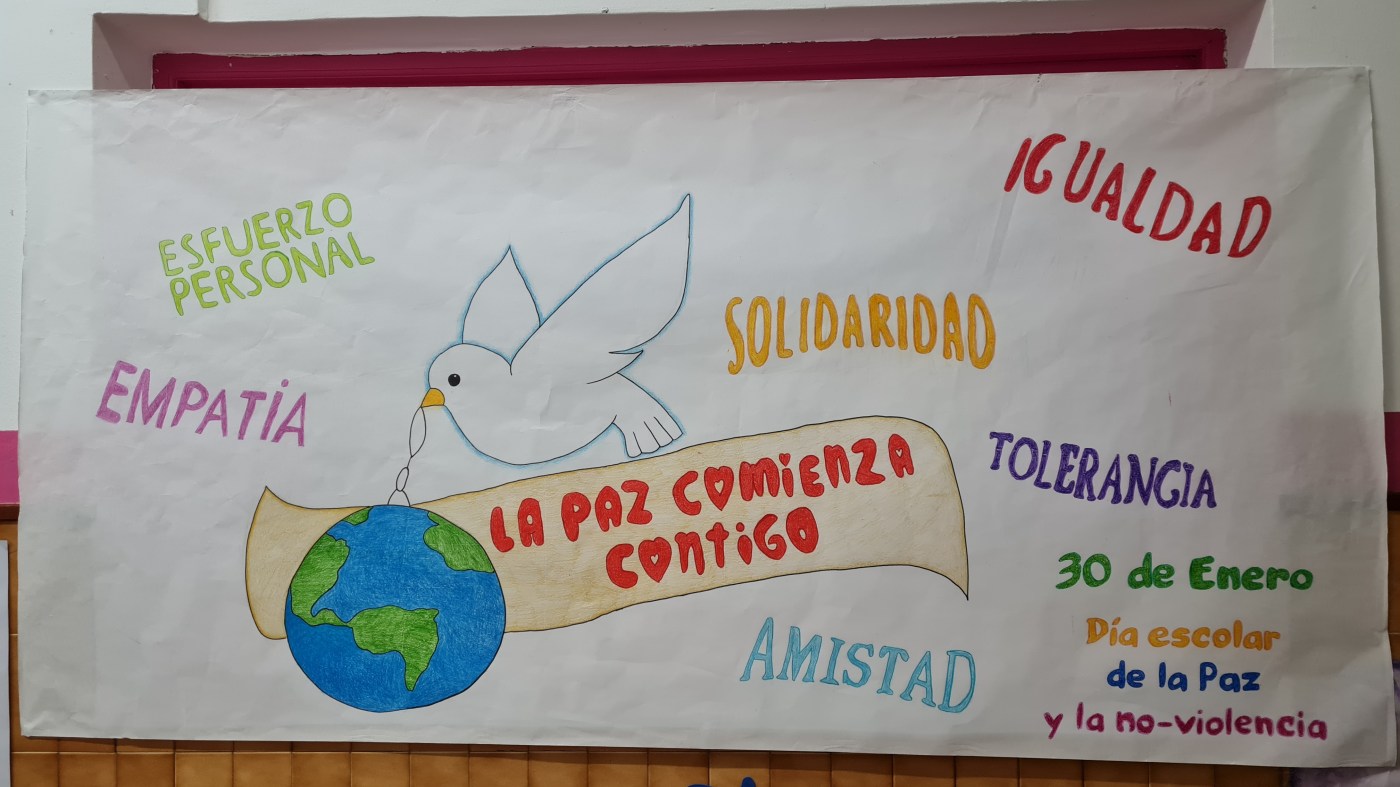 ESFUERZO
PERSONAL
EMPATÍA
LA PAZ COMIENZA
CONTIGO
SOLIDARIDAD
IGUALDAD
TOLERANCIA
AMISTAD
30 de Enero
Día escolar
de la Paz
y la no-violencia